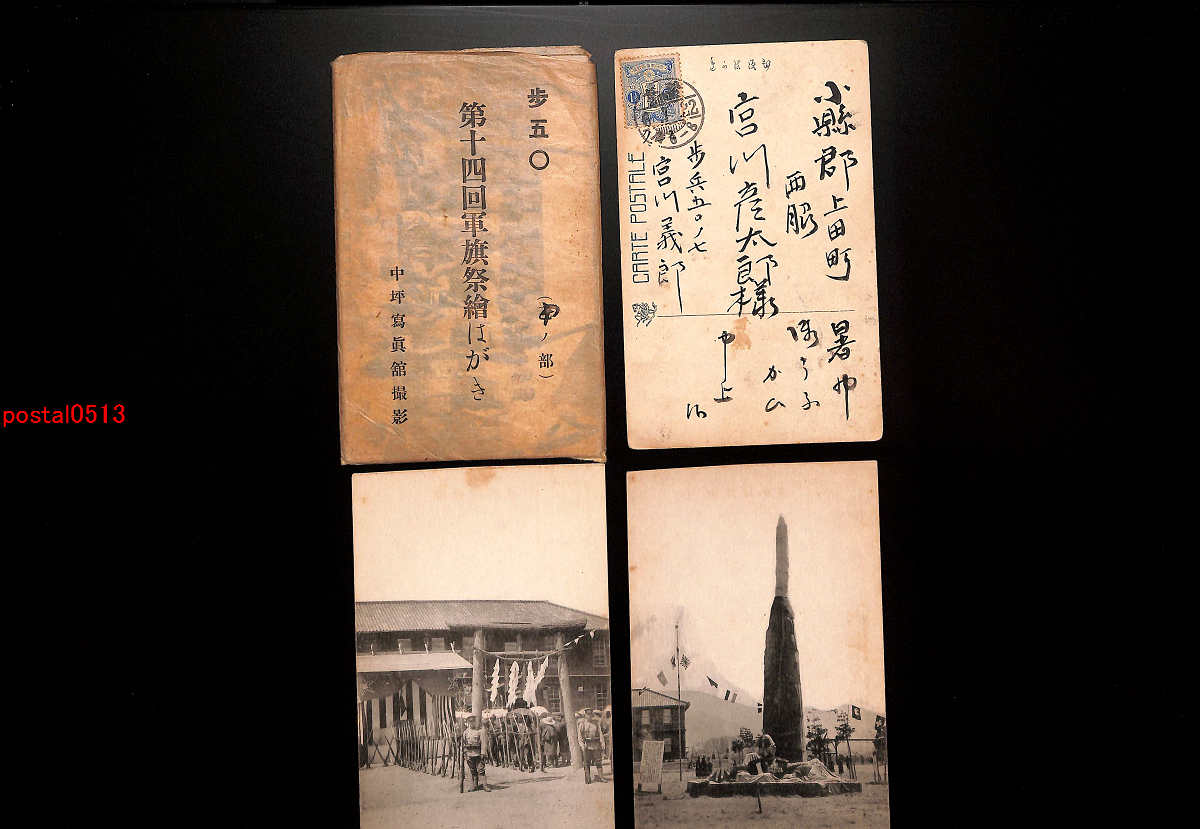 歩五〇
第十四回軍旗祭繪はがき
(ノ部)
中坪寫眞舘撮影
小縣郡上田町
西脇
宮川彦太郎様
歩兵五〇ノ七
宮川義郎
CARTE POSTALE
暑中
申上
postal0513